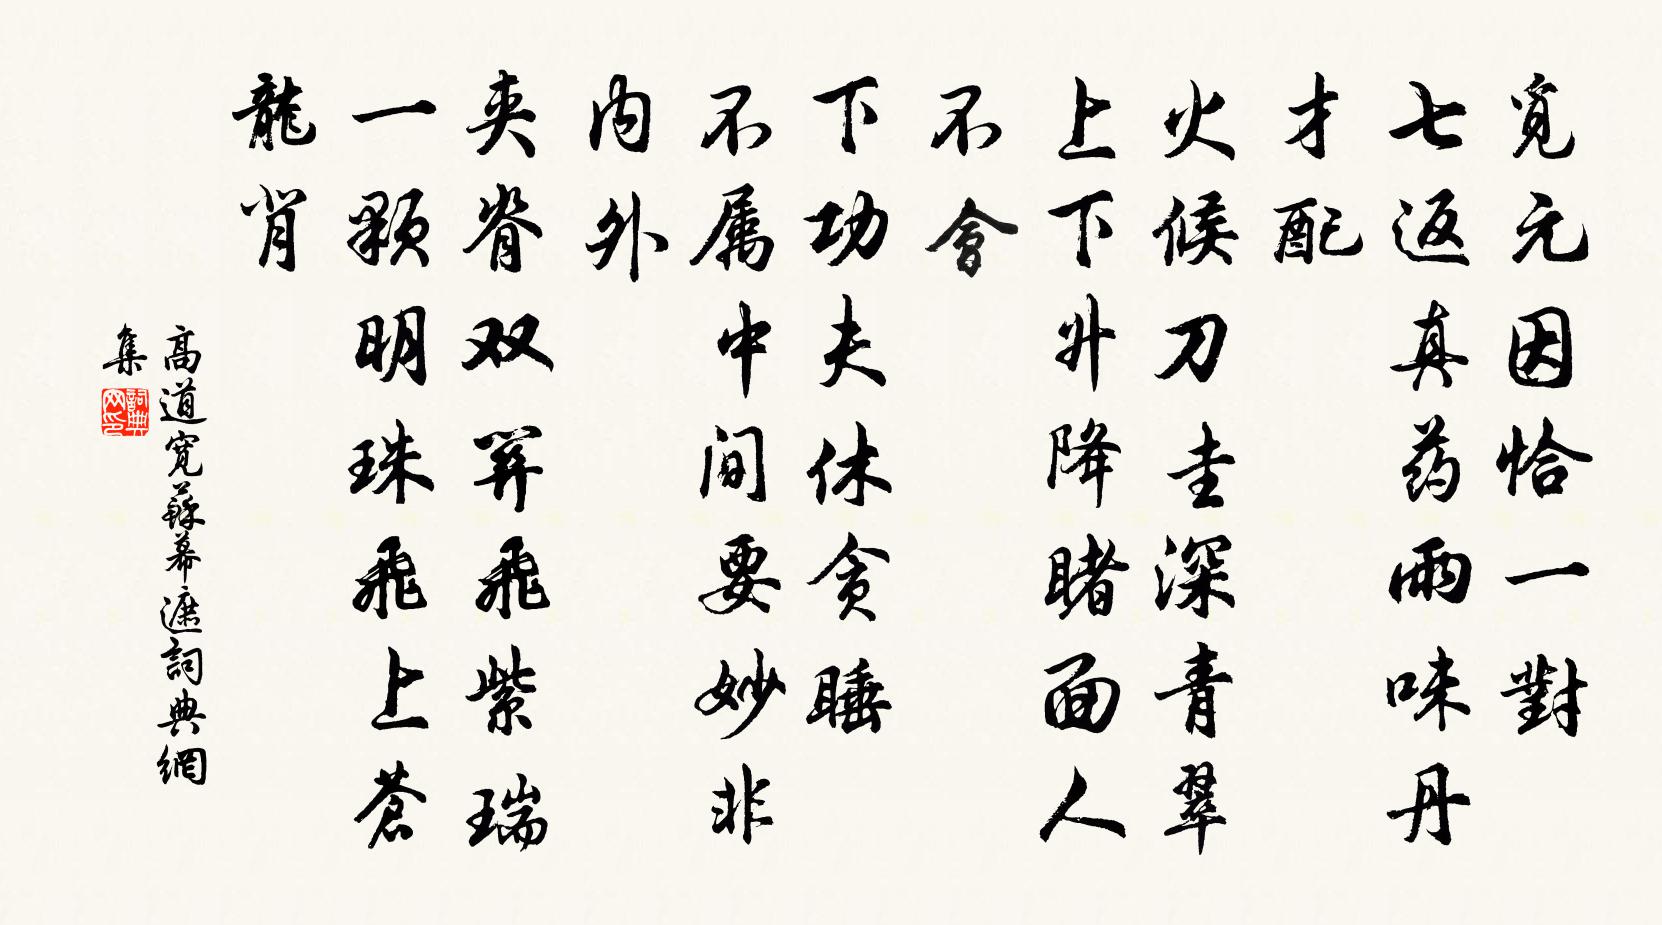 覓元因恰一對
七返真药雨味丹
才配
火候刀圭深青翠
上下升降睹面人
不會
下功夫休贪睡
不属中间要妙非
内外
夹脊双關飛紫瑞
一颗明珠飛上蒼
龍背
高道寬蘇幕遮詞典網
集
詞典网印